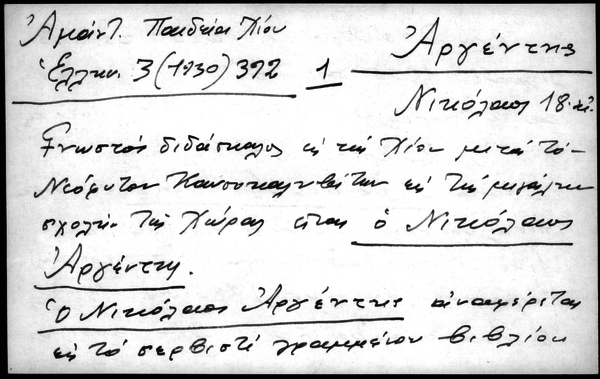 Ἀμάντ. Παιδεία Χίου
Ἑλλην. 3 (1930) 392 1
Ἀργέντης
Νικόλαος 18. αἰ.
Γνωστὸς διδάσκαλος ἐν τῇ Χίῳ μετὰ τὸν
Νεόφυτον Καυσοκαλυβίτην ἐν τῇ μεγάλῃ
σχολῇ τῆς Χώρας εἶναι ὁ Νικόλαος
Ἀργέντης.
Ὁ Νικόλαος Ἀργέντης ἀναφέρεται
εἰς τὸ σερβιστὶ γραμμένον βιβλίον